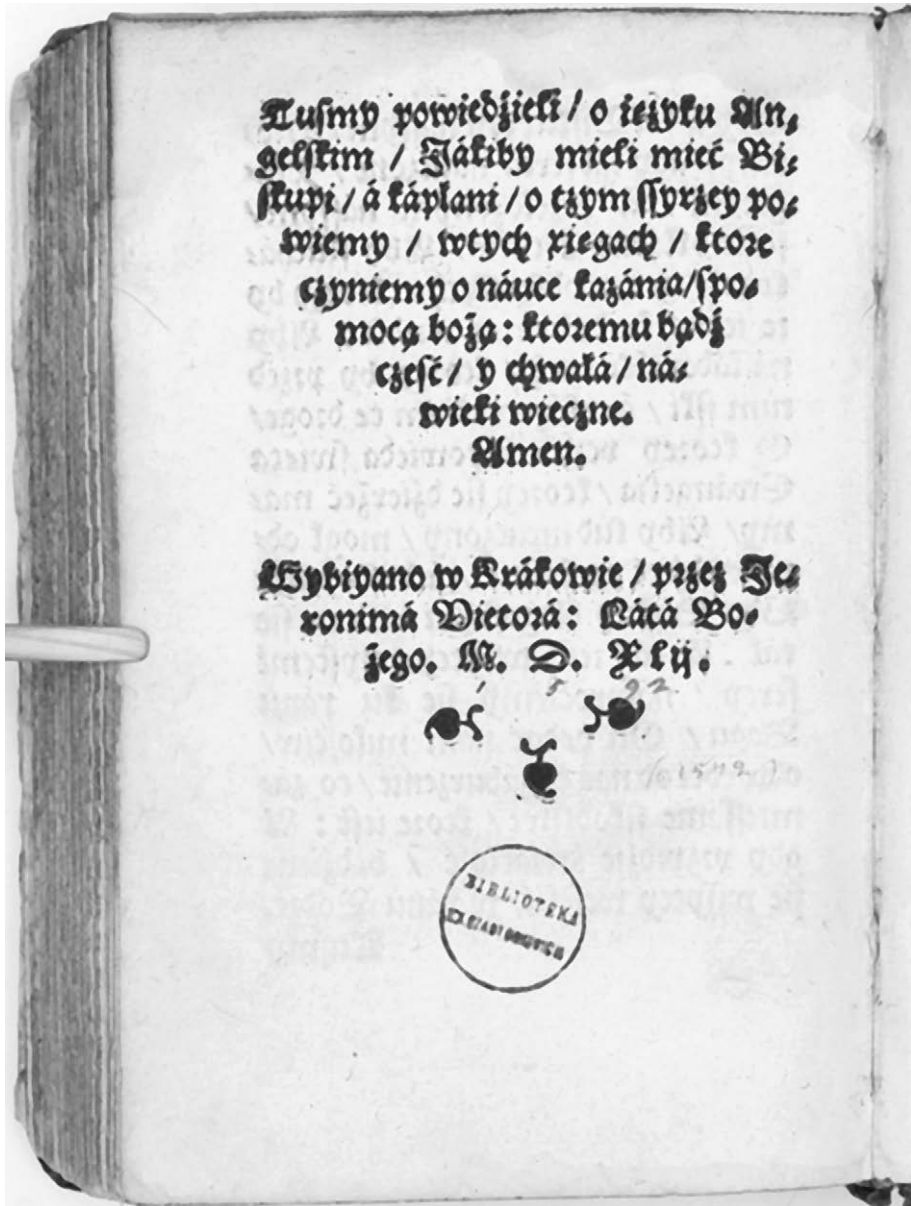 Tusmy powiedźieli / o ięzyku An⸗
gelſkim / Jákiby mieli mieć Bi⸗
ſkupi / á kápłani / o cżym ſſyrzey po⸗
wiemy / wtych xięgach / ktore
cżyniemy o náuce kazánia/ſpo⸗
mocą bożą: ktoremu bądź
cżeſć / y chwałá / ná⸗
wieki wiecżne.
Amen.
Wybiyano w Krákowie / przez Je⸗
ronimá Vietorá: Látá Bo⸗
żego. M. D. Xlij.
1 5 42
(1542)
BIBLIOTEKA